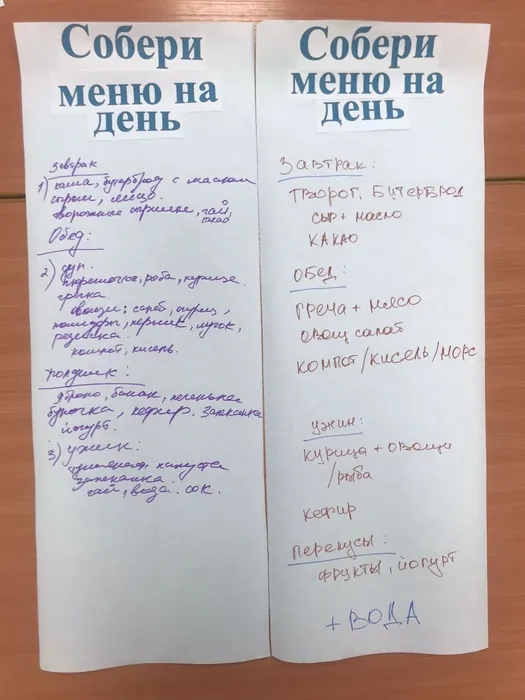 Собери
меню на
день
завтрак
1) каша, бутерброд с маслом
сыром, яйцо.
творожные сырники, чай,
какао
Обед:
2) суп.
картошечка, рыба, курица.
гречка
овощи: салат, огурец,
помидоры, перчик, лучок,
редиска.
компот, кисель.
полдник:
яблоко, банан, печенье
булочка, кефир. запеканка
йогурт.
3) ужин:
капуста
запеканка.
чай, вода. сок.
Собери
меню на
день
Завтрак:
творог, бутерброд
сыр + масло
какао
обед:
греча + мясо
овощ салат
компот/кисель/морс
ужин:
курица + овощи
/рыба
кефир
перекусы:
фрукты, йогурт
+ ВОДА